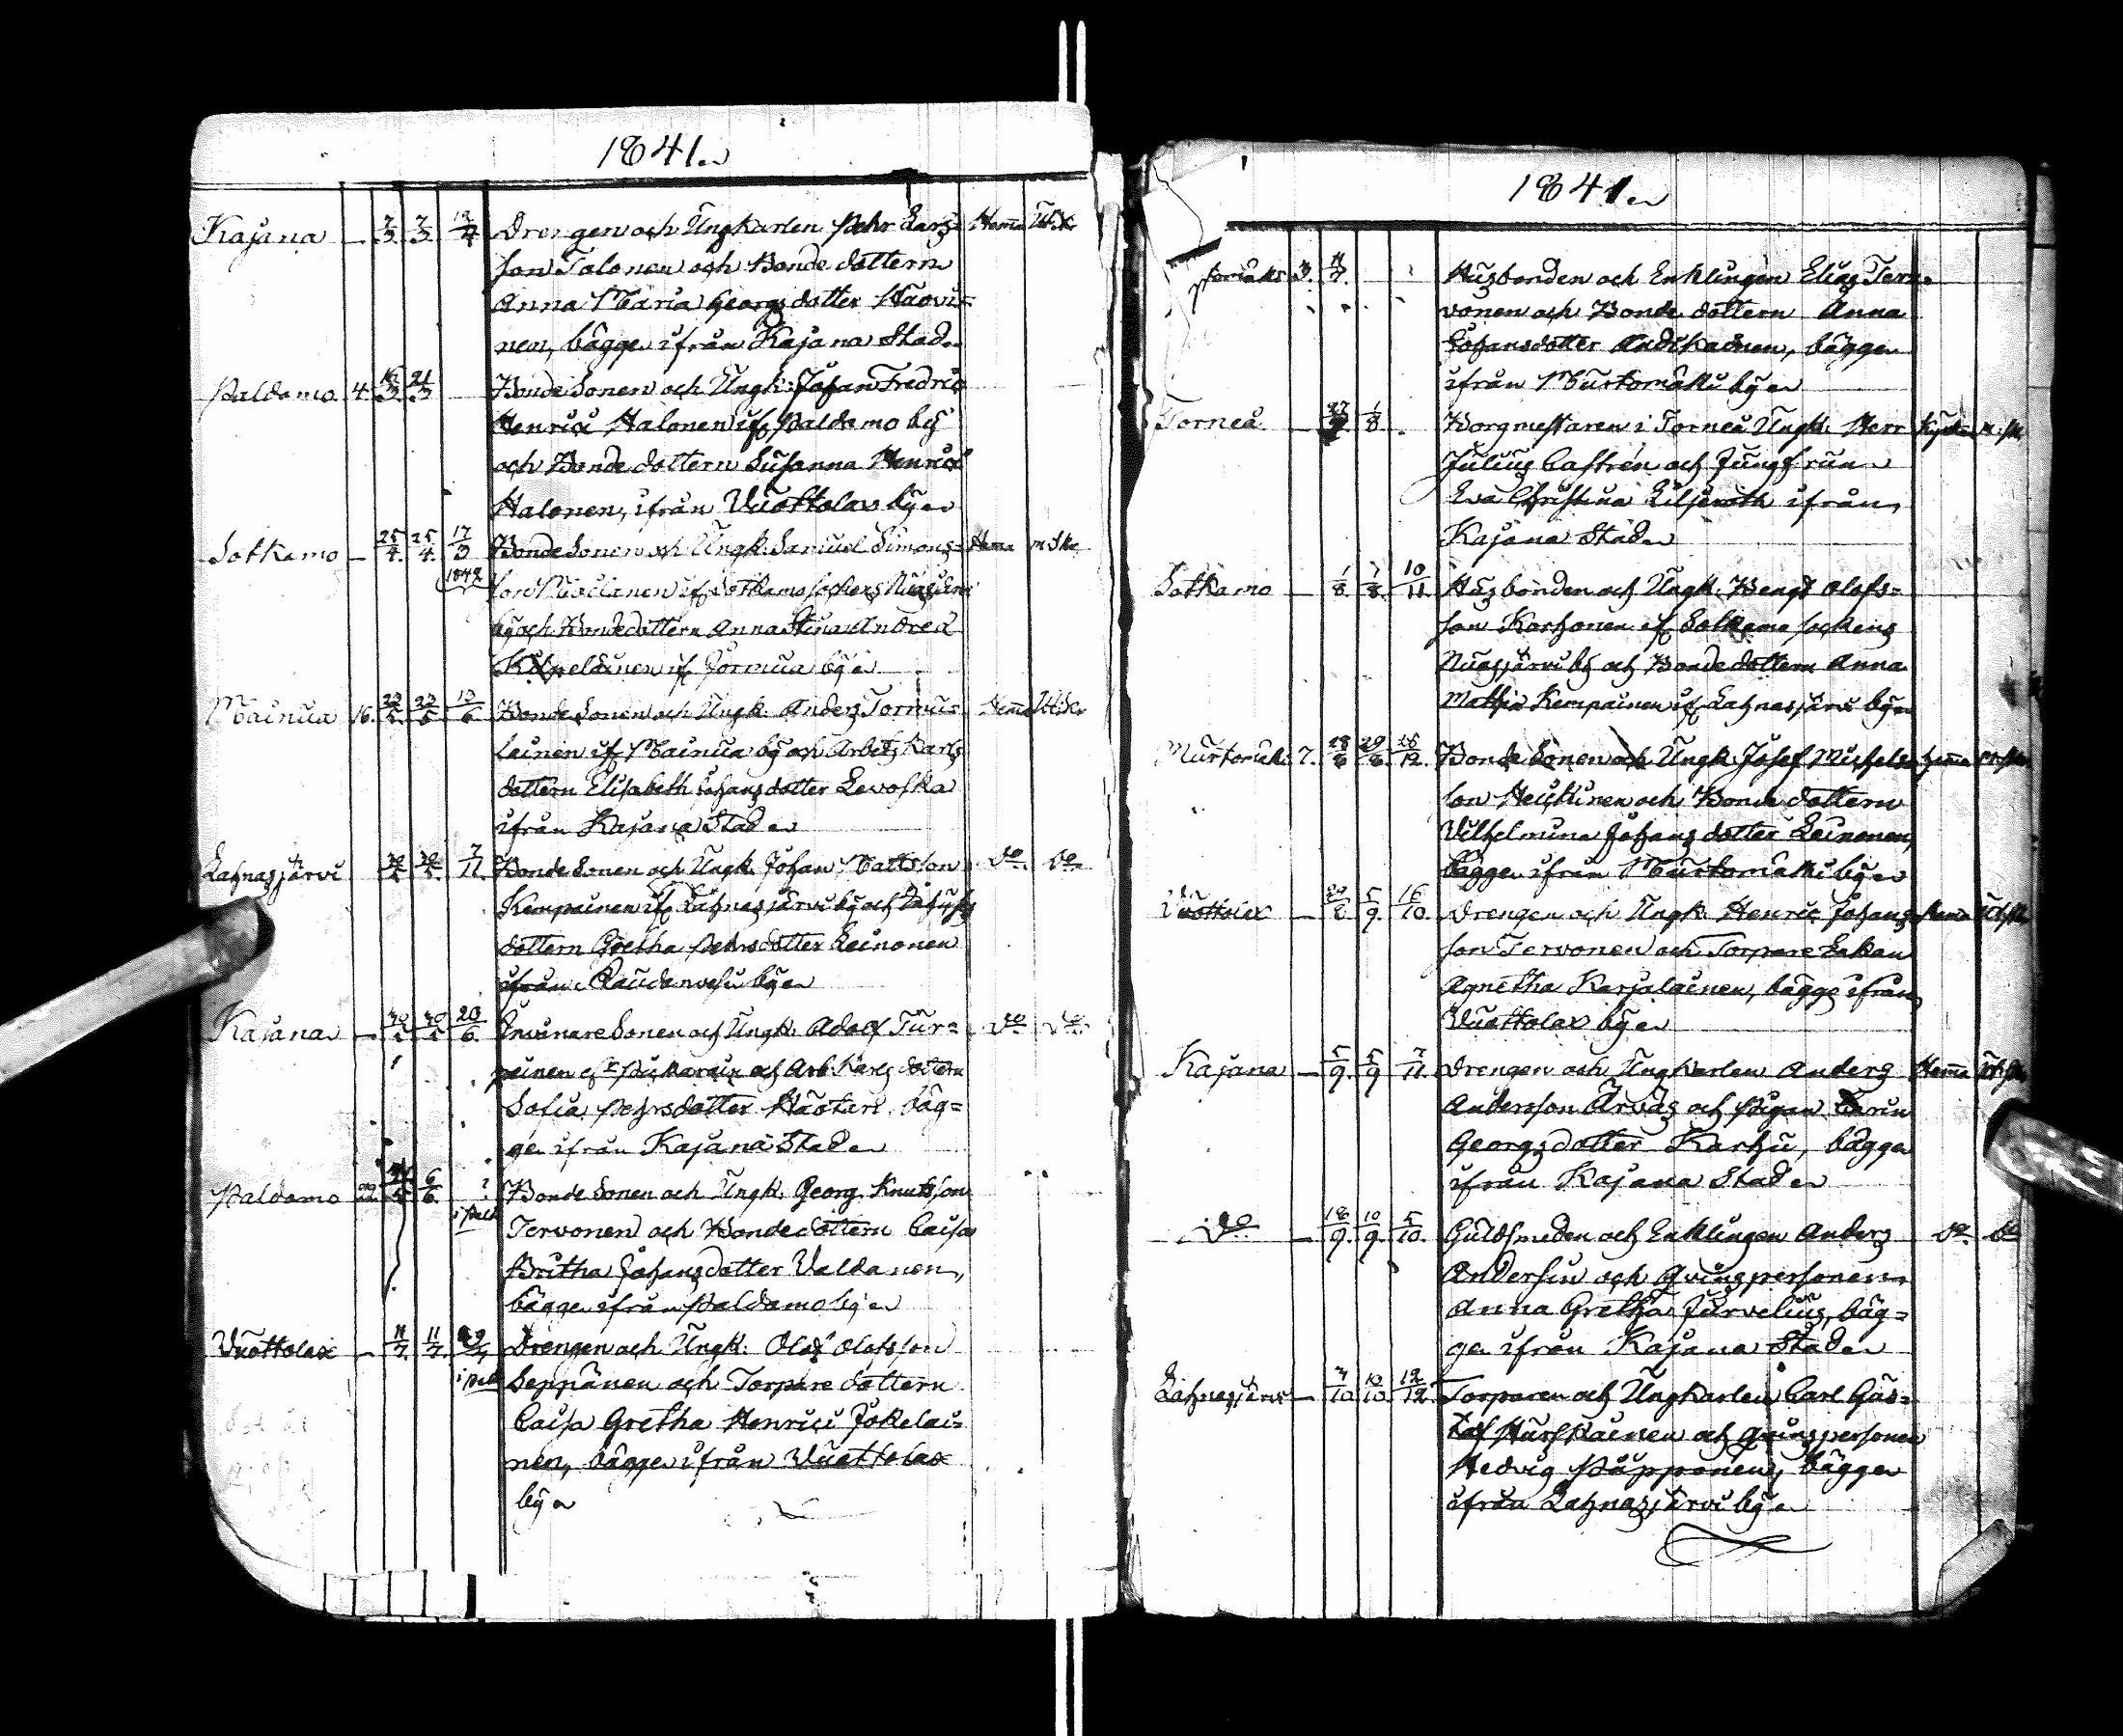 1841.
Kajana — 7/3 7/3 12/4 Drengen och Ungkarlen Pehr Lars=
son Talonen och Bonde dottern
Anna Maria Georgsdotter Haavi=
nen, bägge ifrån Kajana Stad
Paldamo 4. 21/3 Bonde Sonen och Ungk: Johan Fredric
Henrici Halonen if. Paldamo by
och Bonde dottern Susanna Henrics
Halonen, ifrån Vuottolax by
Sotkamo — 25/4. 25/4. 17/3 Bonde Sonen och Ungk. Samuel Simons=
1842 son if. Sotkamo Sockens
by och Bondedottern Anna Stina Andrea
if Jormua by
Mainua 16. 23/5. 23/5 13/6 Bonde Sonen och Ungk. Anders Tormu=
lainen if. Mainua by och Arbets Karls
dottern Elisabeth Johansdotter Levoska
ifrån Kajana Stad
Lahnasjärvi 30/5. 30/5. 7/11. Bonde Sonen och Ungk. Johan Mattsson Do. Do
Kempainen if. Lahnasjärvi by och
dottern Gretha Pehrsdotter Leinonen
ifrån by
Kajana — 30/5 30/5 20/6. Sonen och Ungk: Adolf Tur= Do Do
peinen och Arb: Karls dottern
Sofia Pehrsdotter bäg=
ge ifrån Kajana Stad
Paldamo 6/6. ? Bonde Sonen och Ungk. Georg Knutsson
i Pald Tervonen och Bondedottern Caisa
Britha Johansdotter Valdanen,
bägge ifrån Paldamo by
Vuottolax — 11/7. 11/7. Drengen och Ungk: Olof Olofsson
i Pald Seppänen och Torpare dottern
Caisa Gretha Henrici Jokelai=
nen, bägge ifrån Vuottolax
by
1841.
3. Husbonden och Enklingen Elias Ter=
vonen och Bonde dottern Anna
Johansdotter bägge
ifrån Murtomäki by
Torneå — 1/8. Borgmestaren i Torneå Ungk. Herr
Julius Castrén och Jungfrun
Eva Christina Liljeroth ifrån
Kajana Stad
Sotkamo — 1/8. 1/8. 10/11 Husbonden och Ungk. Bengt Olofs=
son Korhonen if. Sotkamo Sockens
Nuasjärvi by och Bonde dottern Anna
Mathia Kempainen if. Lahnasjärvi by
Murtomäki 7. 28/8 29/8. 28/12. Bonde Sonen och Ungk. Josef Michels= hemma
son Heickinen och Bonde dottern
Vilhelmina Johans dotter Leinonen,
bägge ifrån Murtomäki by
Vuottolax — 5/9. 16/10. Drengen och Ungk. Henric Johans=
son Tervonen och Torpare Enkan
Agnetha Karjalainen, bägge ifrån
Vuottolax by
Kajana — 5/9. 5/9 7/11. Drengen och Ungkarlen Anders Hemma
Andersson Arvas och Pigan Carin
Georgsdotter Karhu, bägge
ifrån Kajana Stad
Do — 18/9. 10/9. 5/10. Guldsmeden och Enklingen Anders Do. Do
Andersin och Qvinspersonen
Anna Gretha Jurvelius, bäg=
ge ifrån Kajana Stad
Lahnasjärvi — 7/10. 10/10. 12/12. Torparen och Ungkarlen Carl Gus=
taf Hurskainen och Qvinspersonen
Hedvig Pääppönen, bägge
ifrån Lahnasjärvi by